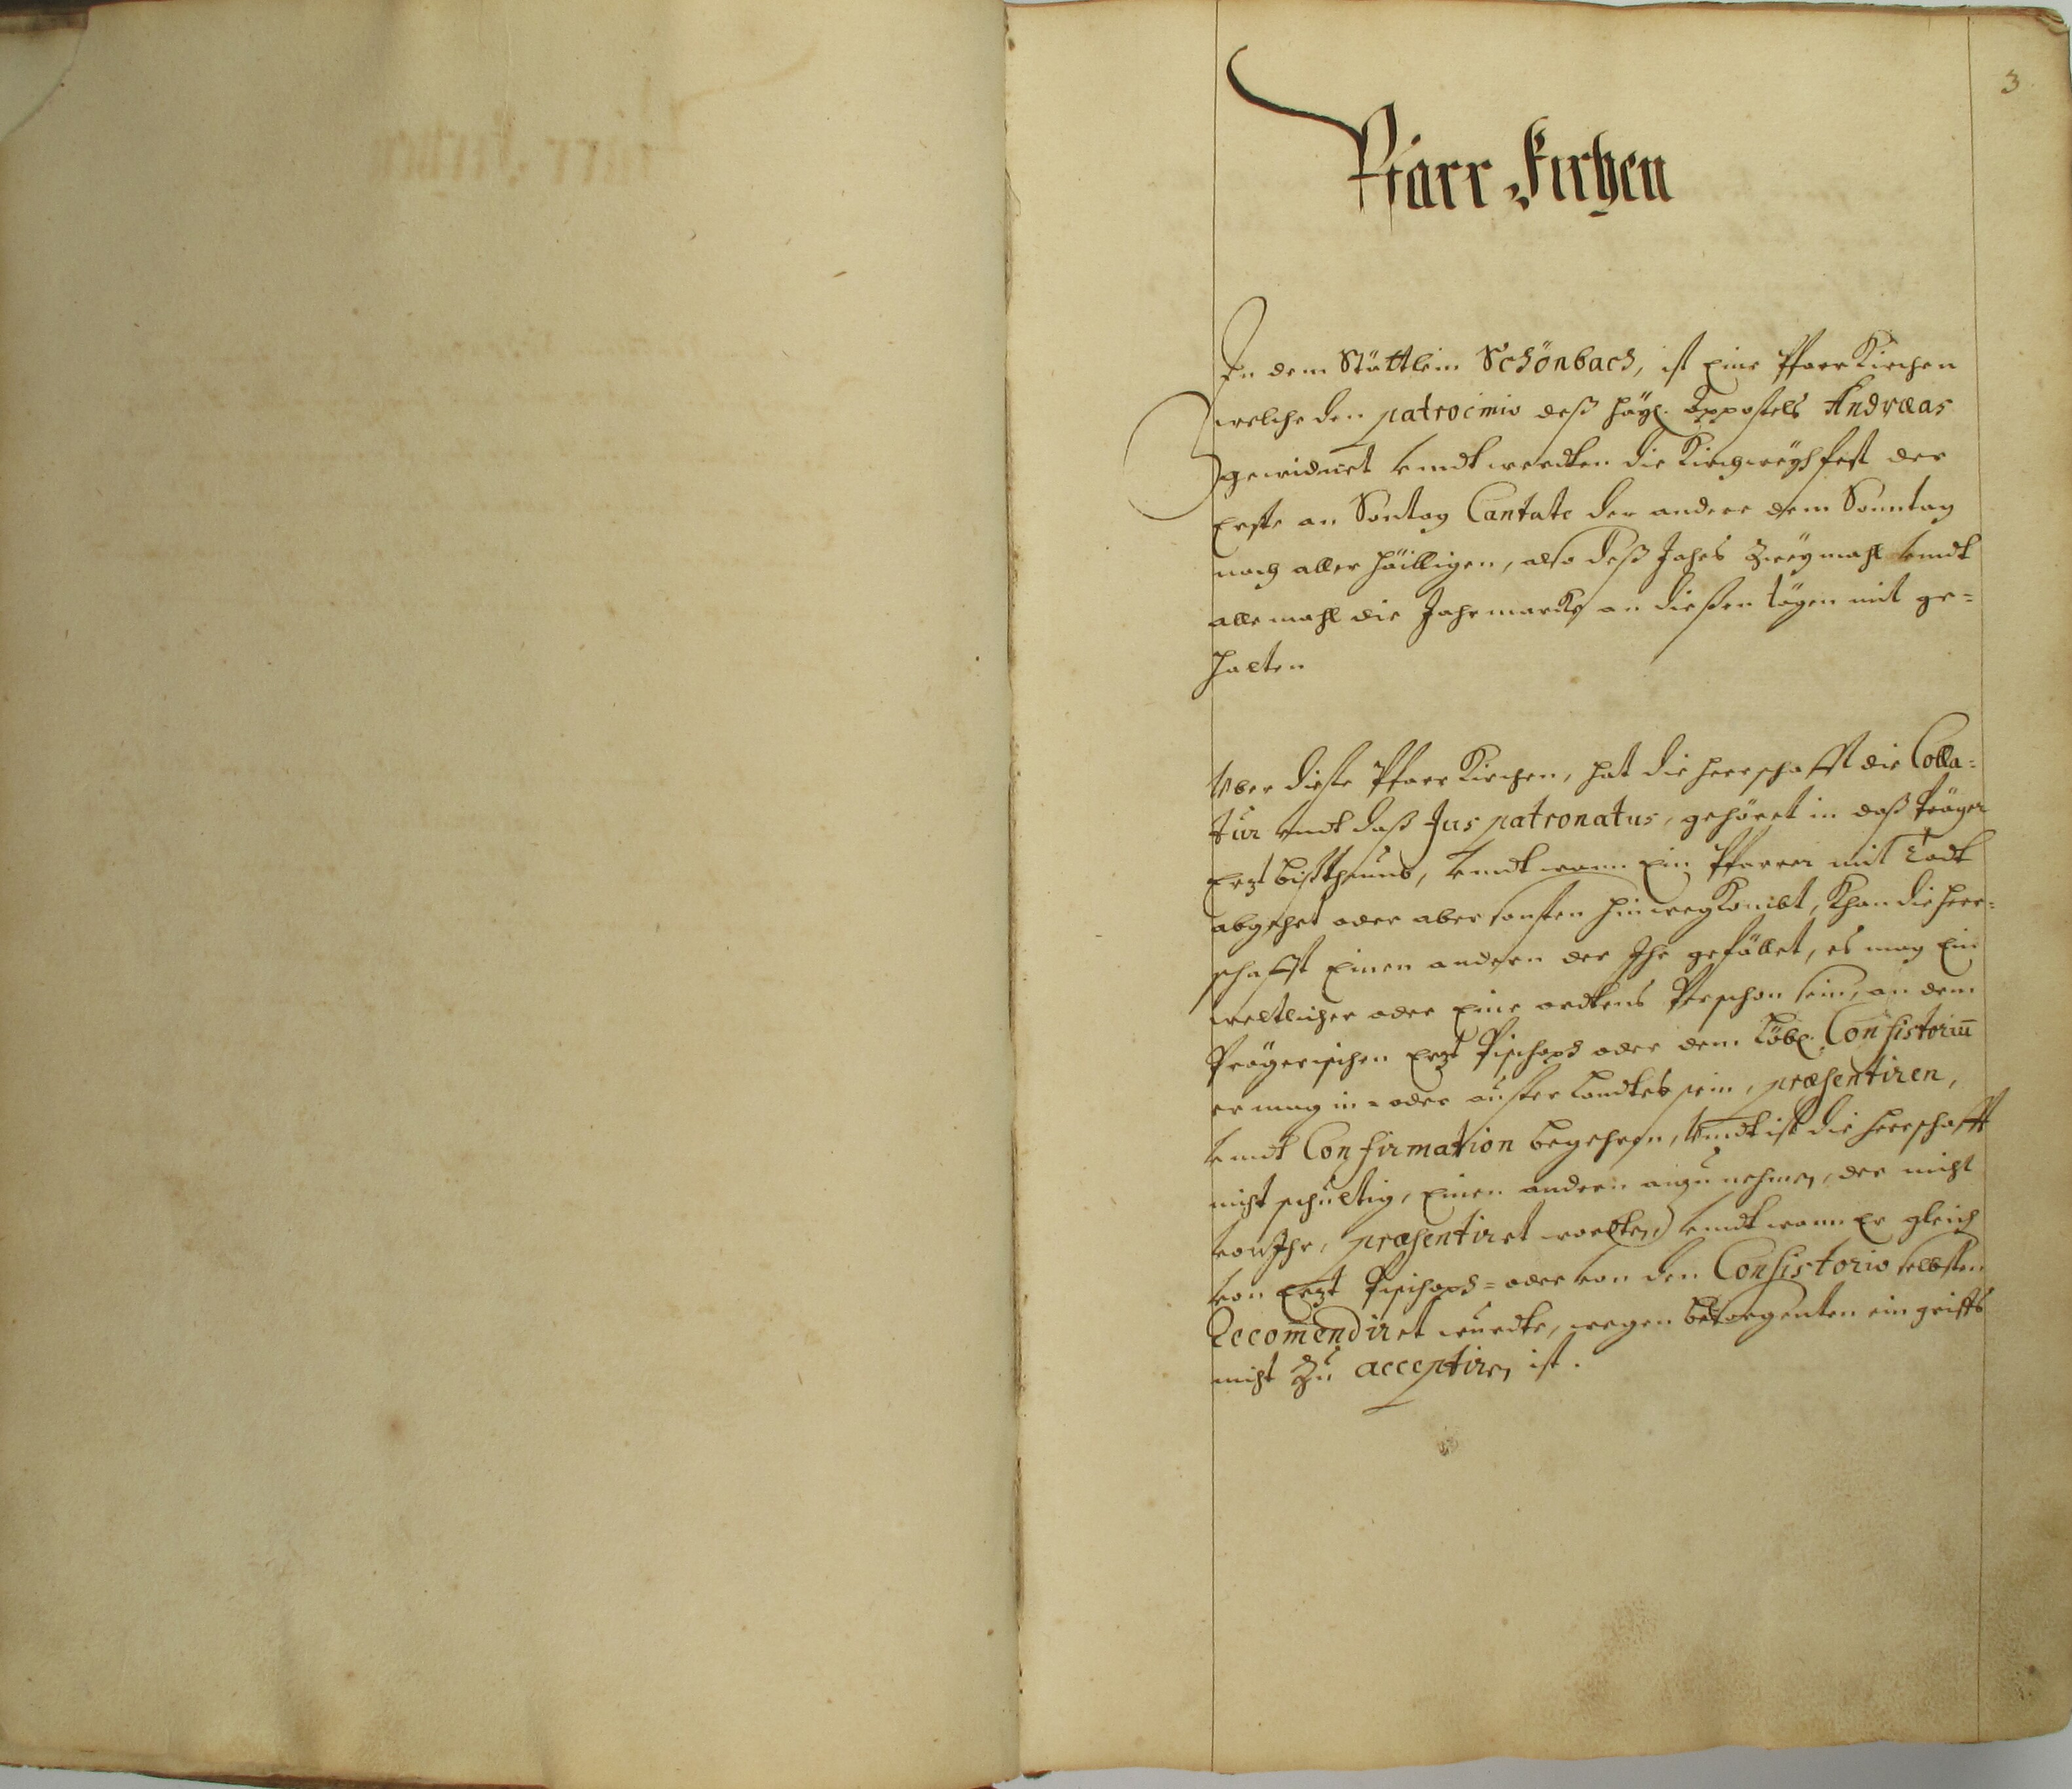 3
Pfarr Kirchen
In dem Stättlein Schönbach, ist Eine Pfarr Kirchen
welche den patrocinio deß Häyl. Appostels Andræas
gewidmet vndt werdten die Kirchweyhfest der
Erste an Sontag Cantate der andere dem Sonntag
nach aller Häilligen, also deß Jahrs zweymahl vndt
alle mahl die Jahrmarckt an dießen tägen mit ge=
halten
Vber dieße Pfarr Kirchen, hat die Herrschafft die Colla=
tur vndt daß Jus patronatus, gehöret in daß Präger
Ertzbistthumb, vndt wann Ein Pfarrer mit Todt
abgehet oder aber sonsten hinweg kombt, Khan die Herr=
schafft Einen andern der Ihr gefället, es mag Ein
weltlicher oder Eine ordtens Perschon sein, an dem
Prägerischen Ertz Pischoff oder dem Löbl. Consistoriū
er mag in = oder auster Landtes sein, præsentiren,
vndt Confirmation begehren, Vndt ist die Herrschafft
nicht schultig, Einen andern anzunehmen, der nicht
von Ihr, præsentiret wordten, vndt wann Er gleich
von Ertzt Pischoff = oder von den Consistorio selbsten
Recom̄endiret wurdte, wegen besorgenten eingriffs
nicht Zu acceptiren ist.